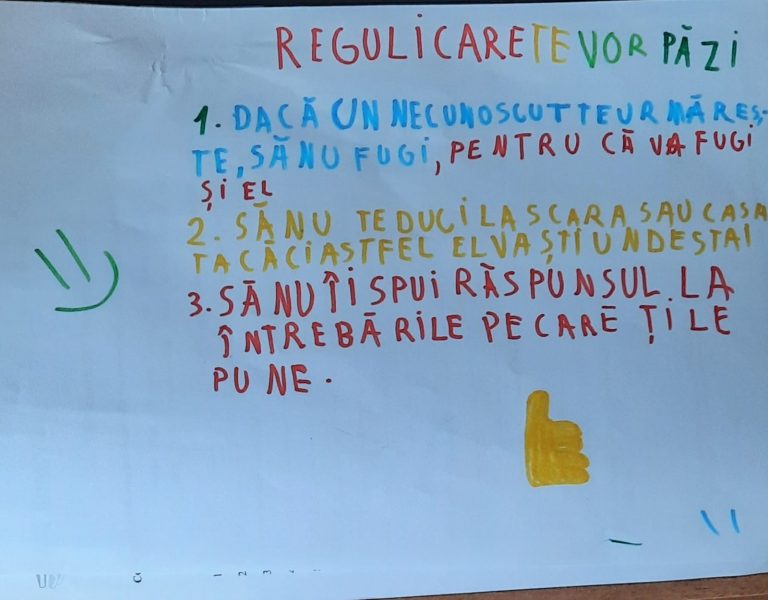 REGULI CARE TE VOR PĂZI
1. DACĂ UN NECUNOSCUT TE URMĂREȘ-
TE, SĂ NU FUGI, PENTRU CĂ VA FUGI
ȘI EL
2. SĂ NU TE DUCI LA SCARA SAU CASA
TA CĂCI ASTFEL EL VA ȘTI UNDE STAI
3. SĂ NU ÎI SPUI RĂSPUNSUL LA
ÎNTREBĂRILE PE CARE ȚI LE
PUNE.